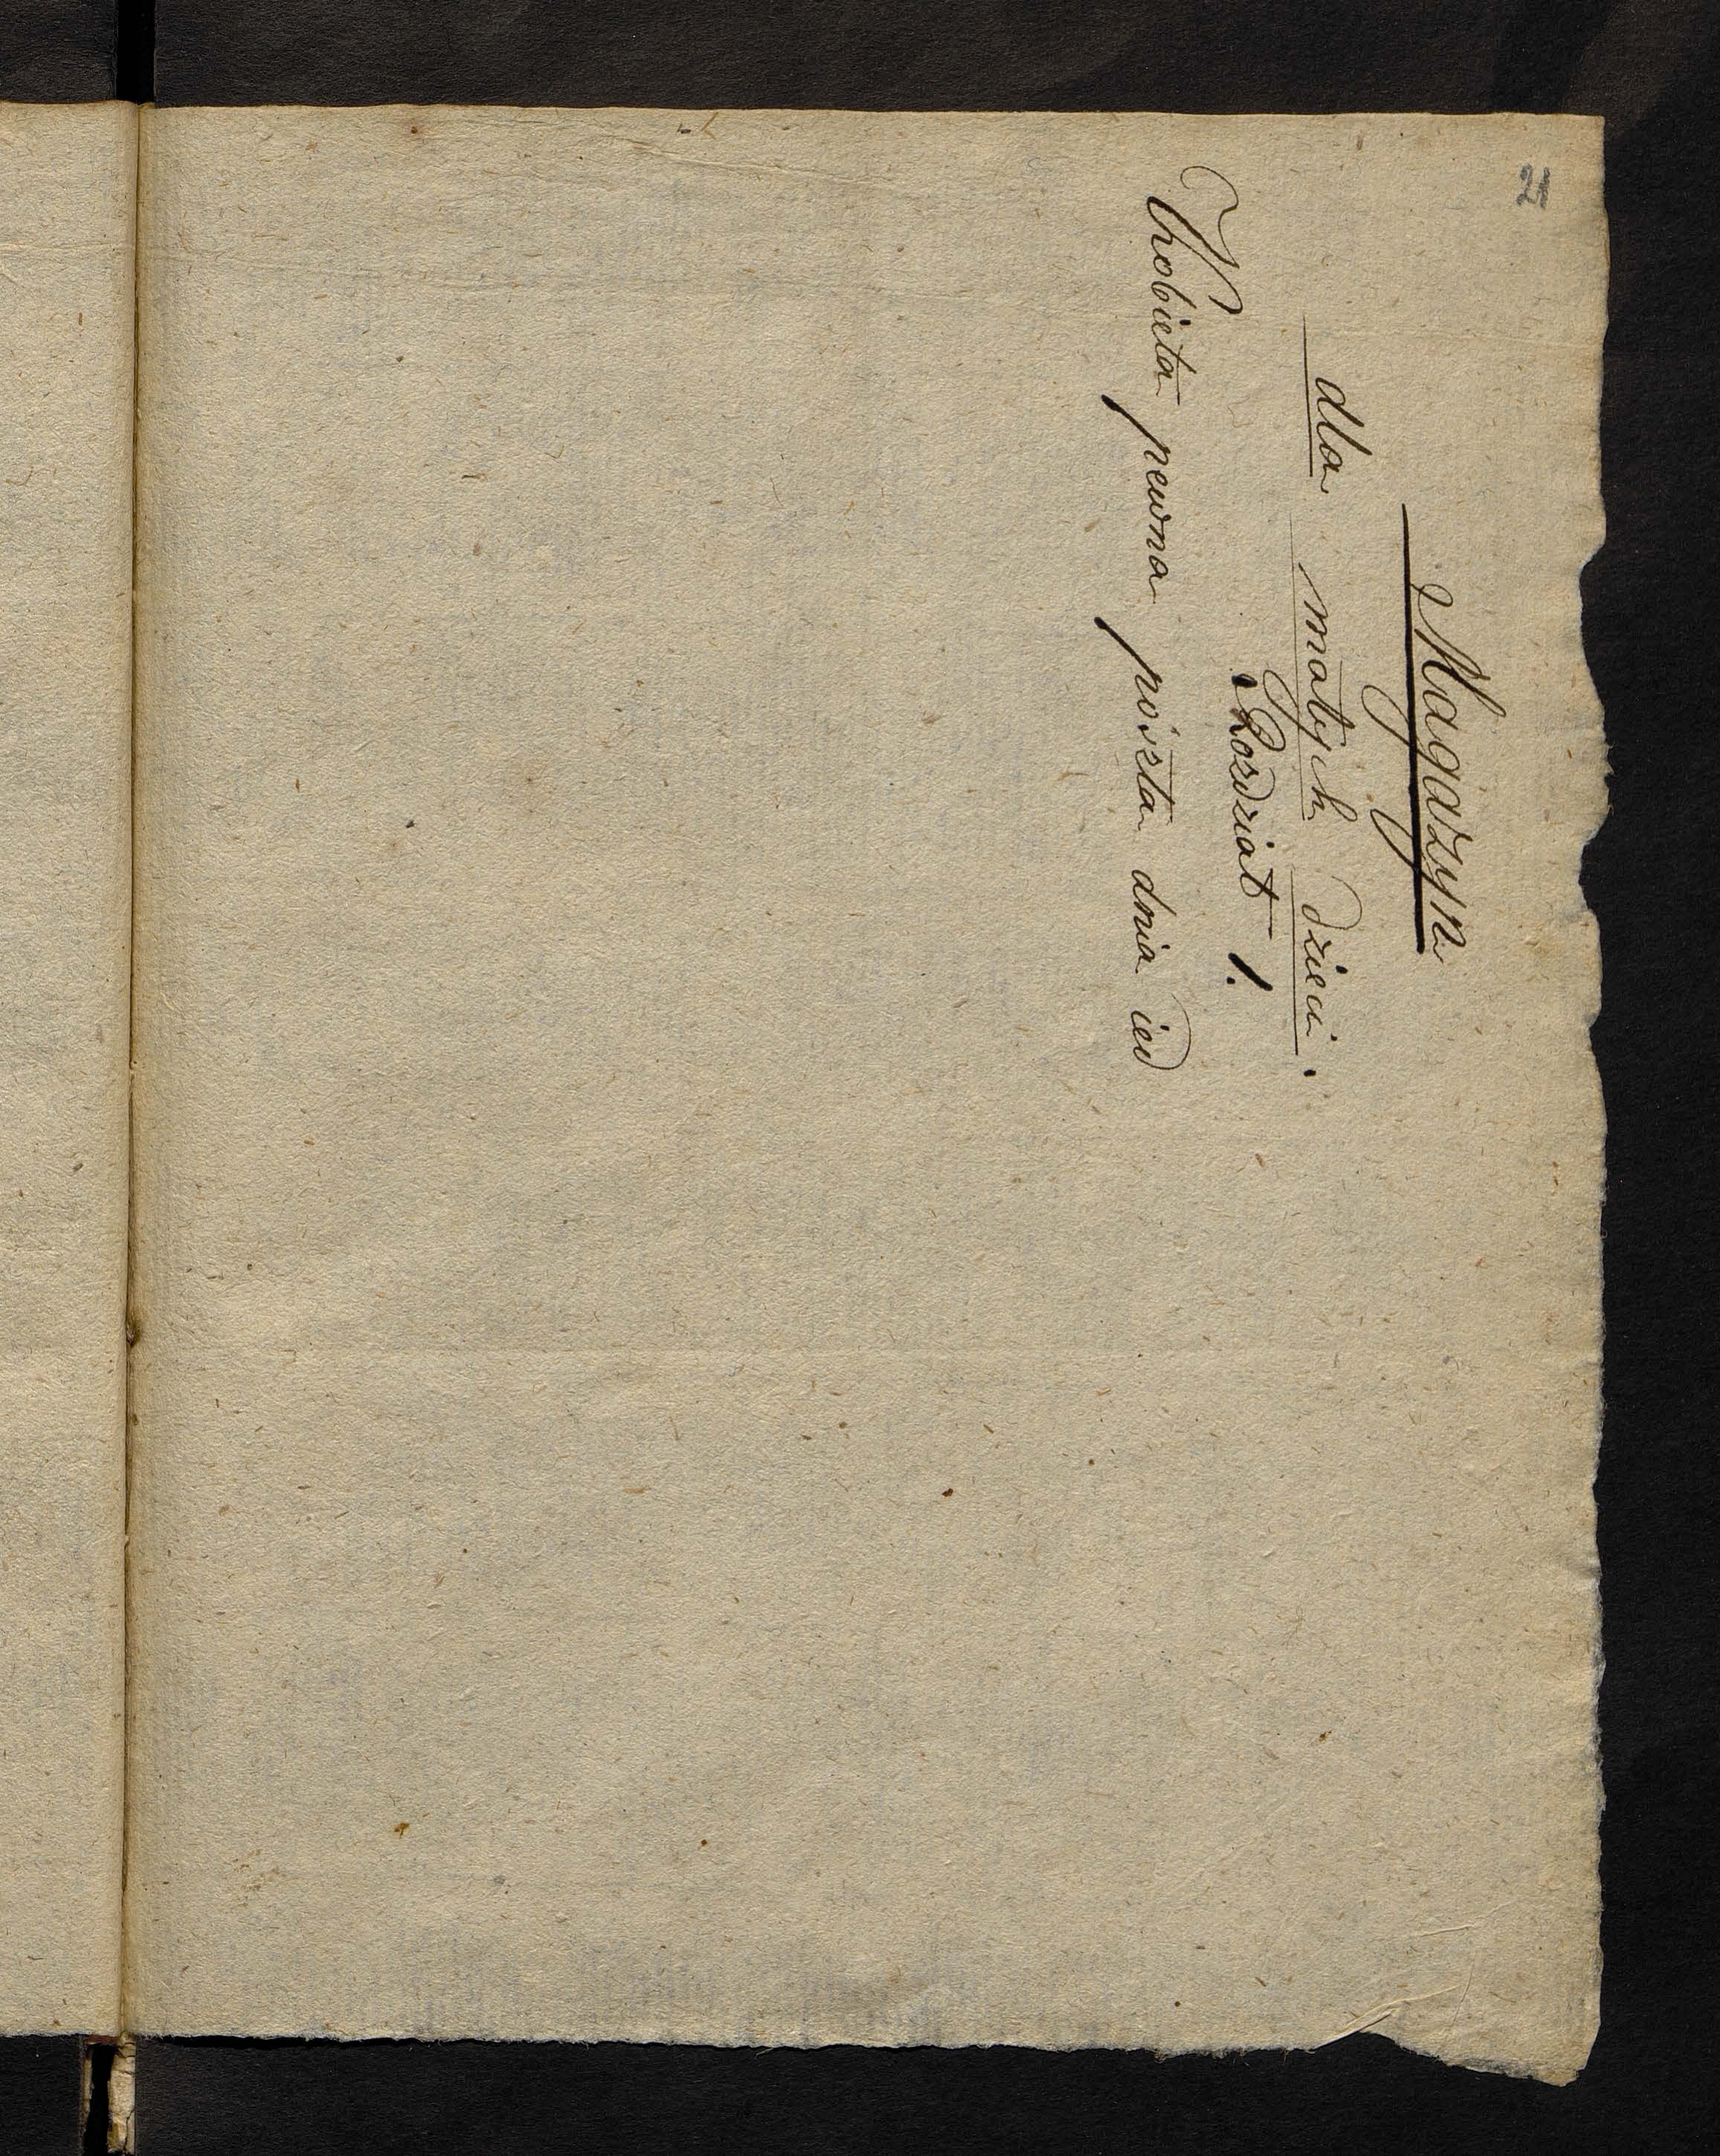 21
Magazyn
dla małych dzieci.
Rozdział 1.
Kobieta pewna poszła dnia ied